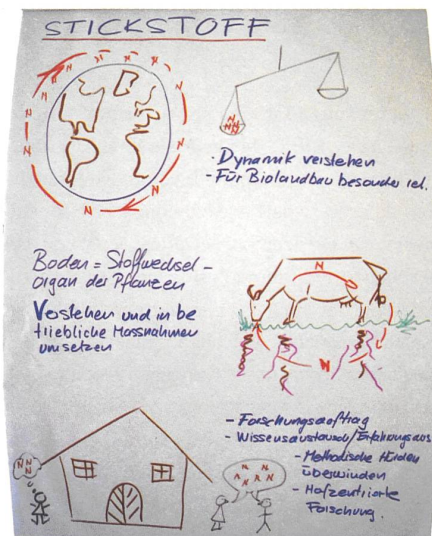 STICKSTOFF
N N N N N N N N N N
N N N N
· Dynamik verstehen
- Für Biolandbau besonder rel.
Boden = Stoffwechsel -
organ der Pflanzen
Verstehen und in be
triebliche Massnahmen
umsetzen
N
N
- Forschungsauftrag
- Wissensaustausch/Erfahrungsaus
- Methodische Hürden
überwinden
- Hofzentrierte
Forschung.
N N
N N N N